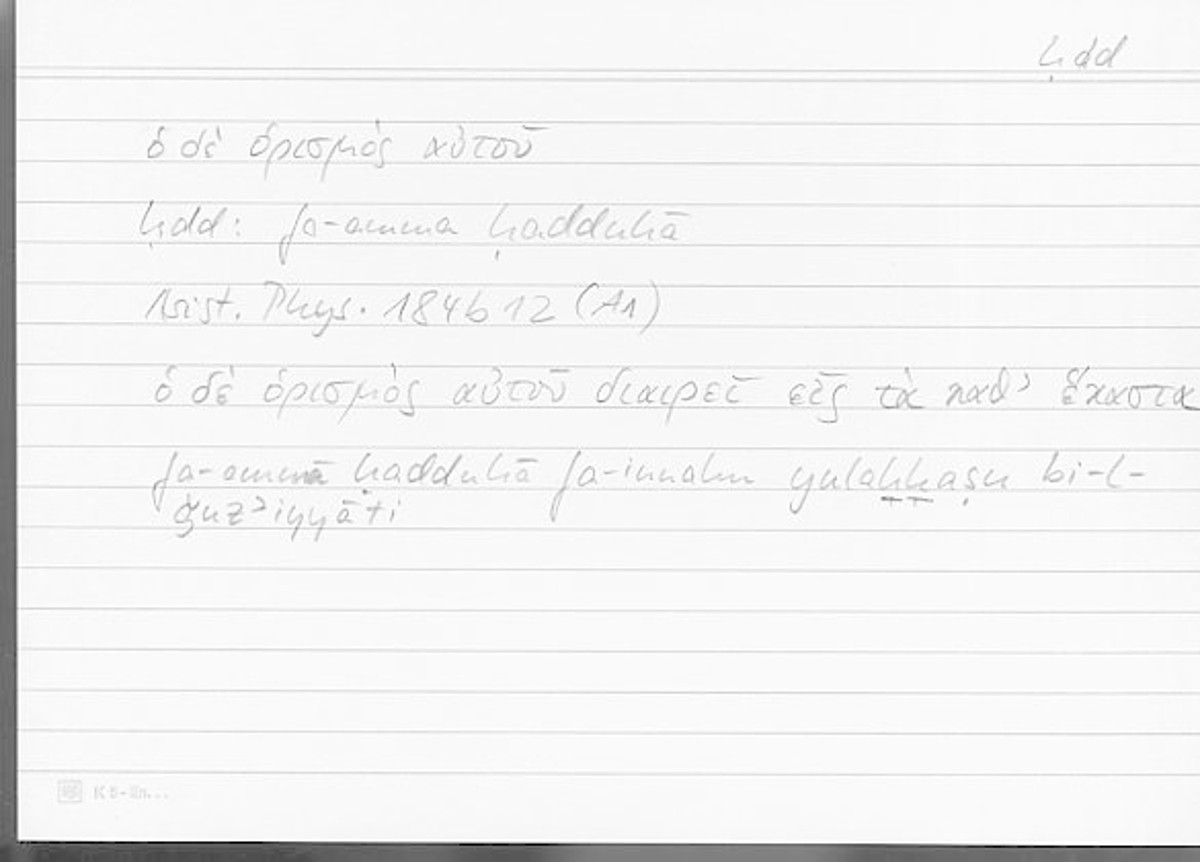 ḥdd
ὁ δὲ ὁρισμὸς αὐτοῦ
ḥdd: fa-amma ḥadduhā
Arist. Phys. 184b12 (A1)
ὁ δὲ ὁρισμὸς αὐτοῦ διαιρεῖ εἰς τὰ καθ’ ἕκαστα
fa-ammā ḥadduhā fa-innahu yulaḫḫaṣu bi-l-
ǧuzʾiyyāti